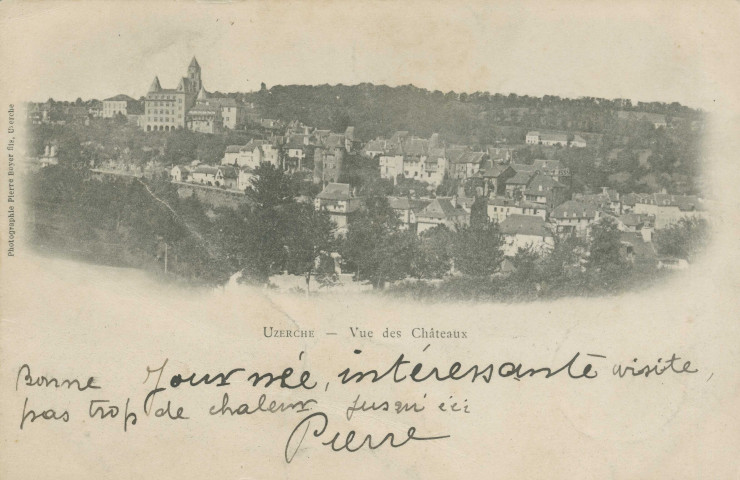 Photographie Pierre Boyer fils, Uzerche
UZERCHE — Vue des Châteaux
Bonne Journée, intéressante visite,
pas trop de chaleur jusqu'ici
Pierre